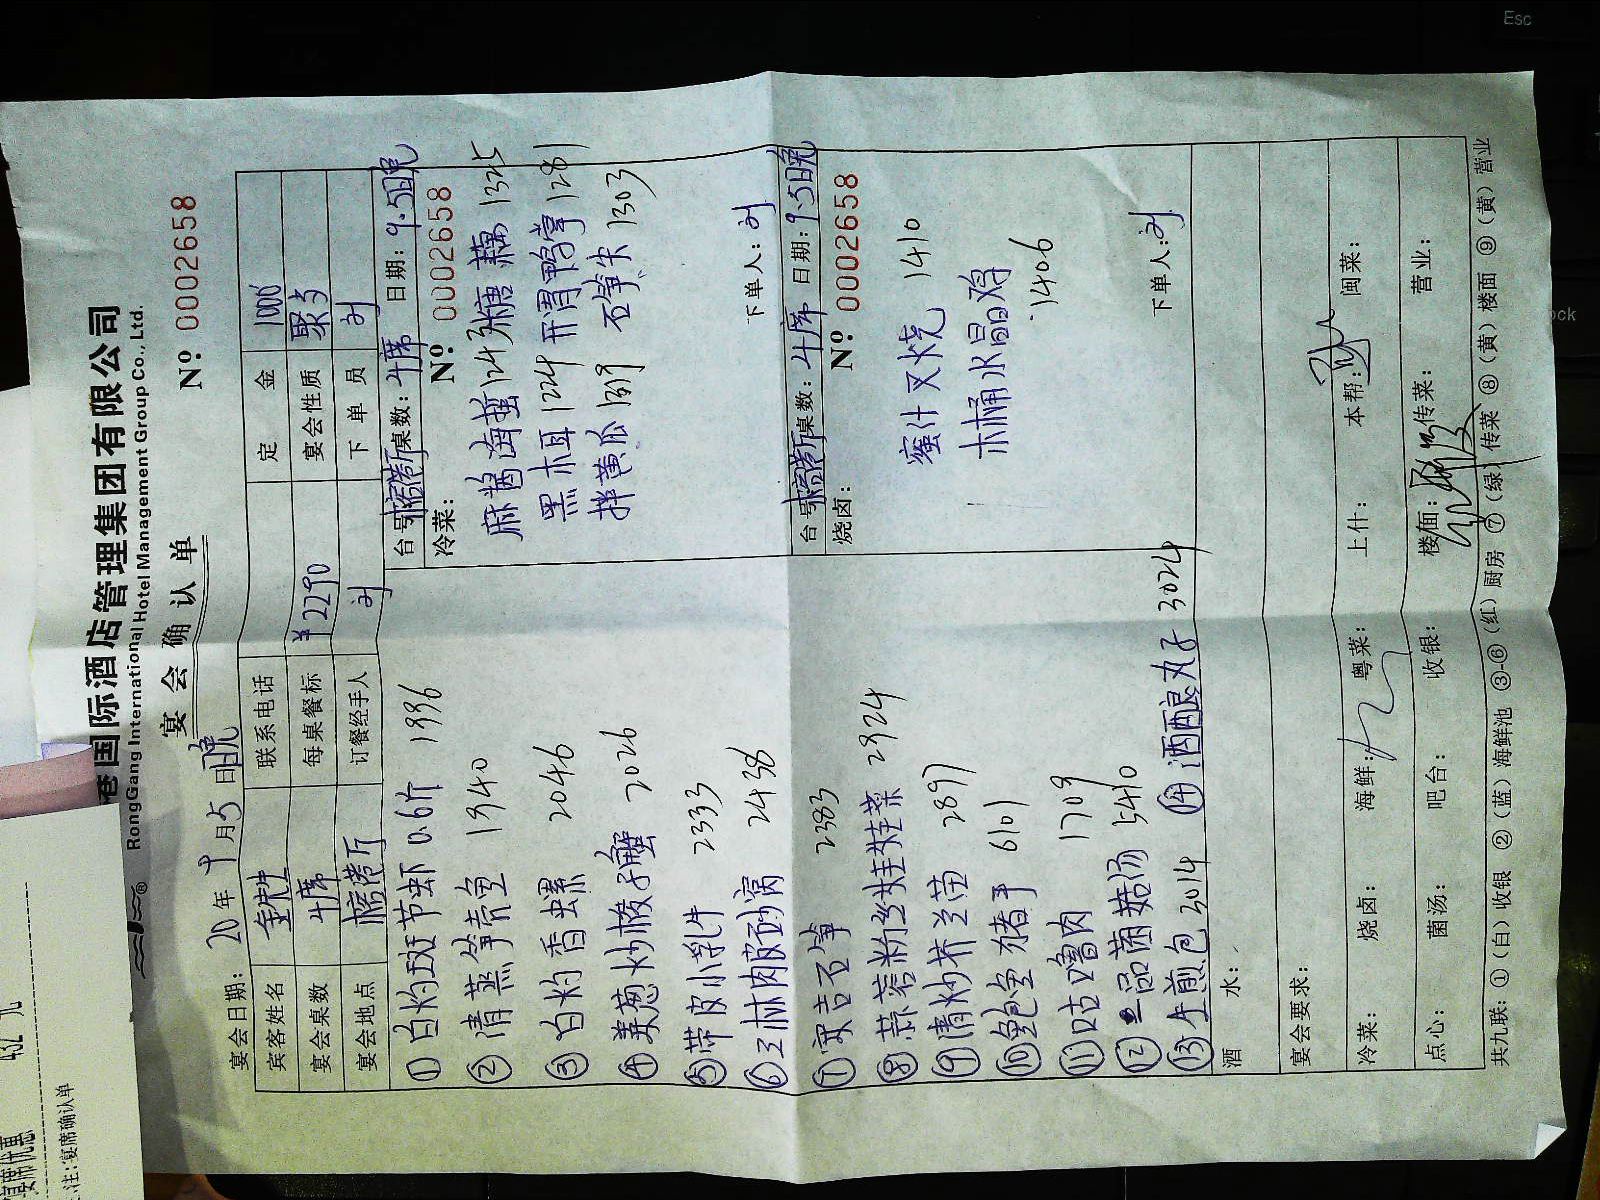 港国际酒店管理集团有限公司
RongGang International Hotel Management Group Co., Ltd.
宴会确认单
№ 0002658
宴会日期: 20 年 9 月 5 日晚
宾客姓名 联系电话 定金 1000
宴会桌数 4席 每桌餐标 ¥2290 宴会性质 聚多
宴会地点 榕港厅 订餐经手人 刘 下单员 刘
① 白灼斑节虾 0.6斤 1936
② 清蒸笋壳鱼 1940
③ 白灼香螺 2046
④ 姜葱炒梭子蟹 2026
⑤ 带皮小乳牛 2333
⑥ 三林肉皮砂窝 2438
⑦ 安吉石笋 2383
⑧ 蒜蓉粉丝娃娃菜 2924
⑨ 清炒芥兰苗 2897
⑩ 鲍鱼猪手 6101
⑪ 咕噜肉 1709
⑫ 品菌菇汤 5410
⑬ 生煎包 3014 ⑭ 酒酿丸子 3024
台号 榕港厅 桌数: 4席 日期: 9.5日晚
冷菜: № 0002658
麻酱海蜇 1243 糖藕 1325
黑木耳 1224 开胃鸭掌 1281
拌黄瓜 1319 石笋尖 1303
下单人: 刘
台号 榕港厅 桌数: 4席 日期: 9.5日晚
烧卤: № 0002658
蜜汁叉烧 1410
木桶水晶鸡
1406
下单人: 刘
酒水:
宴会要求:
冷菜: 烧卤: 海鲜: 粤菜: 上什: 本帮: 闽菜:
点心: 菌汤: 吧台: 收银: 楼面: 传菜: 营业:
共九联: ①(白)收银 ②(蓝)海鲜池 ③-⑥(红)厨房 ⑦(绿)传菜 ⑧(黄)楼面 ⑨(黄)营业
宴席优惠 432元
注:宴席确认单
Esc
ock